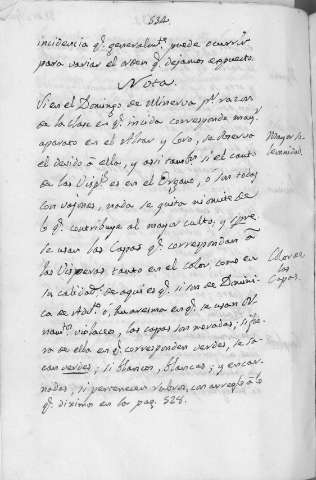 534.
incidencia q.e generalm.te puede ocurrir
para variar el orden q.e dejamos expuesto.
Nota.
Si en el Domingo de Minerva p.r razon
de la clase en q.e incida corresponde may.r
aparato en el Altar y Coro, se observa
el devido à ella, y assi tamb.n si el canto
de las Visp.s es en el Organo, ó son todas
con vajones, nada se quita ni omite de
lo q.e contribuye al mayor culto; y spre
se usan las Capas q.e correspondan à
las Visperas tanto en el color como en
su calidad. de aqui es q.e si son de Domini-
ca de Adv.to ó, Quaresma en q.e se usan Or-
nam.tos violaceos, las capas son moradas; si fue-
ra de ella en q.e corresponden verdes, se sa-
can verdes; si blancos, blancas; y encar-
nadas, si pertenecen rubros, con arreglo à lo
q.e diximos en la pag. 528.
Mayor so-
lemnidad.
Color de
las
Capas.